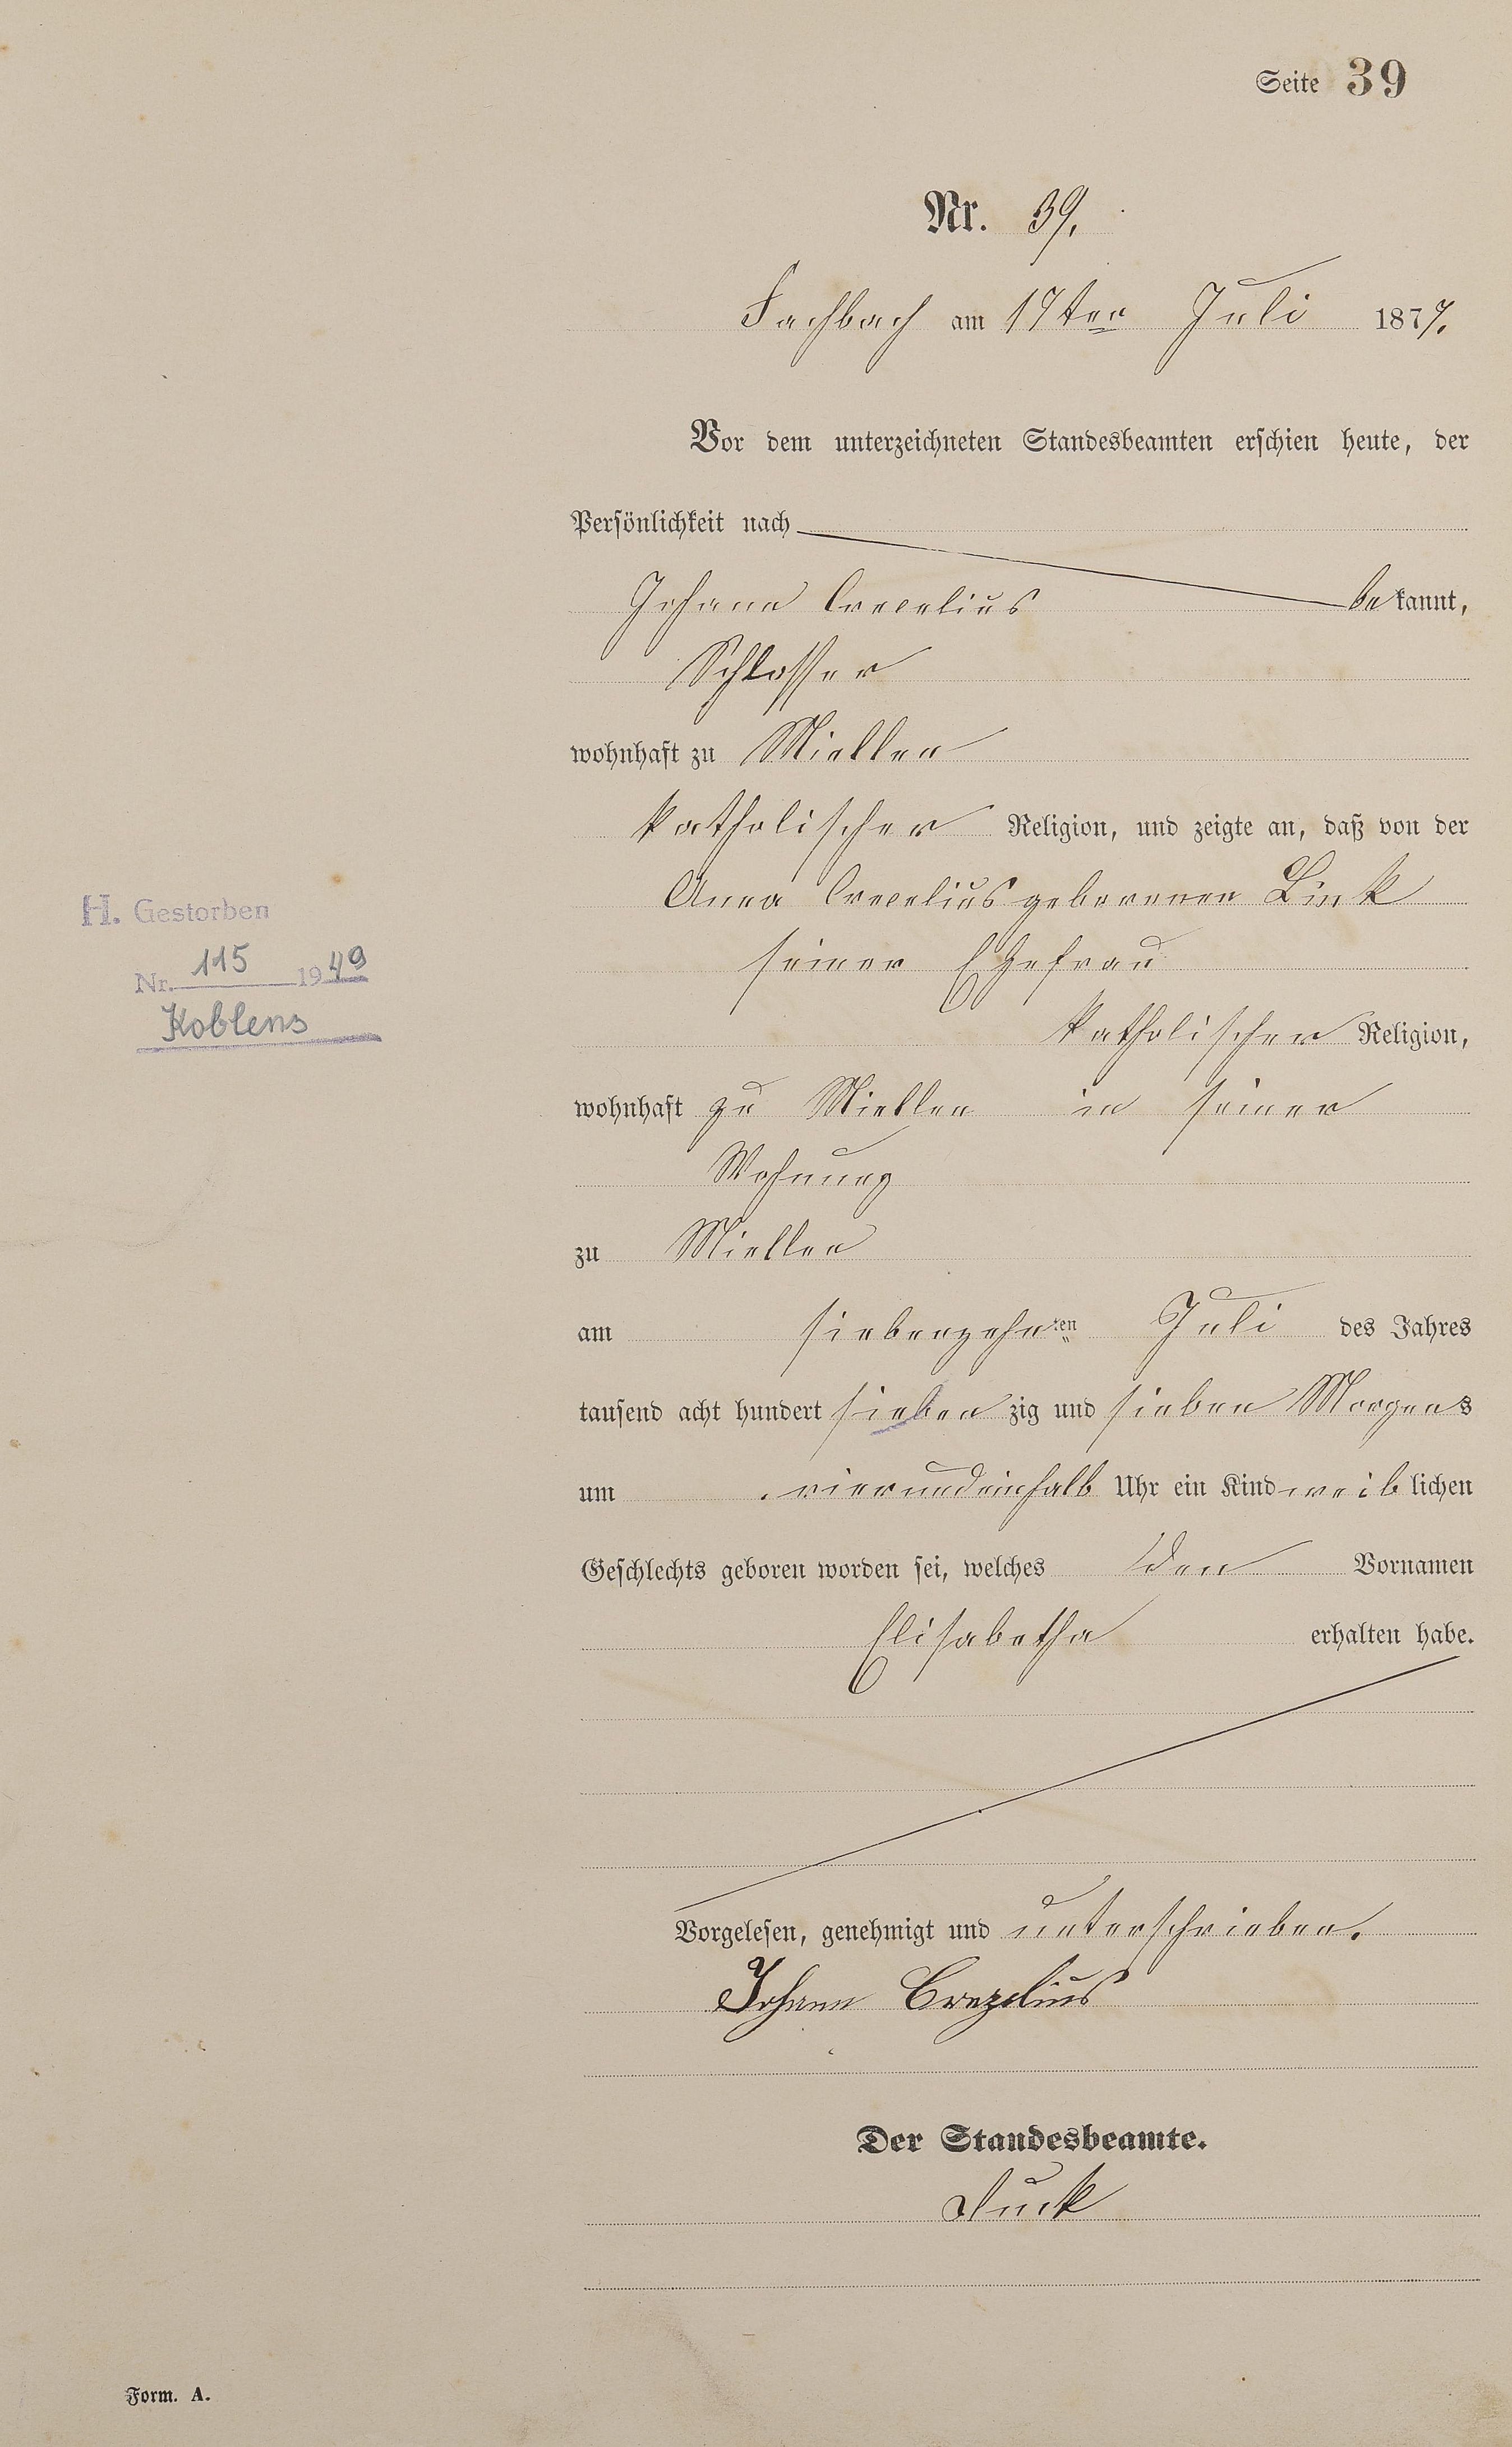 Seite 39
Nr. 39.
Fachbach am 17ten Juli 1877.
Vor dem unterzeichneten Standesbeamten erschien heute, der
Persönlichkeit nach
Johann Crecelius bekannt,
Schlosser
wohnhaft zu Miellen
katholischer Religion, und zeigte an, daß von der
Anna Crecelius geborenen Link
seiner Ehefrau
H. Gestorben
Nr. 115 1949
Koblens
katholischer Religion,
wohnhaft zu Miellen in seiner
Wohnung
zu Miellen
am siebenzehnten Juli des Jahres
tausend acht hundert siebenzig und sieben Morgens
um vierundeinhalb Uhr ein Kind weiblichen
Geschlechts geboren worden sei, welches den Vornamen
Elisabetha erhalten habe.
Vorgelesen, genehmigt und unterschrieben.
Johann Crezelius
Der Standesbeamte.
Form. A.